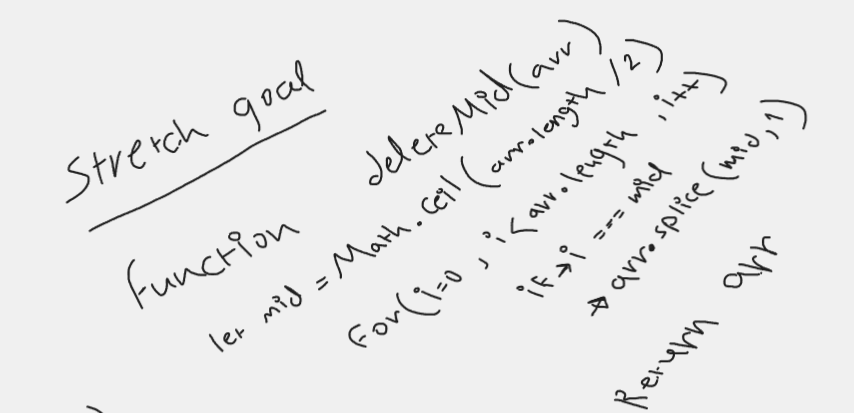 Stretch goal
Function deleteMid(arr)
let mid = Math.ceil(arr.length /2)
For(i=0 , i< arr.length , i++)
if → i === mid
arr.splice(mid,1)
Return arr